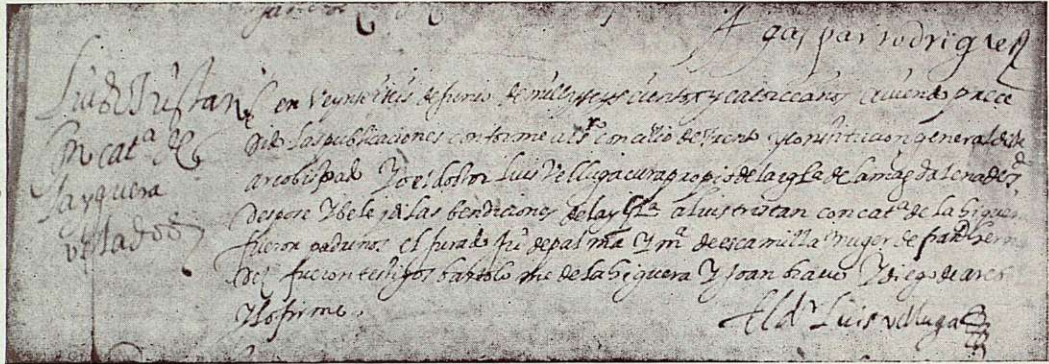 A gaspar rodriguez
Luis Tristan
Con cat.ª de
la yguera
velados
en veynte y seis de junio de mill y seys cientos y catorce años aviendo prece
dido las publicaciones conforme a el s.to concilio de trento y constitucion general deste
arcobispado Yo el dotor Luis Velluga cura propio de la igl.ª de la magdalena de T.do
despose y vele i di las bendiciones de la yglª a luis tristan con catª de la higuera
fueron padrinos el jurado Ju.º de palma y mª de escamilla muger de fran.co hernan
dez fueron testigos bartolome de la higuera y Joan bravo y diego de arcos
y lo firme.
El d.r Luis velluga